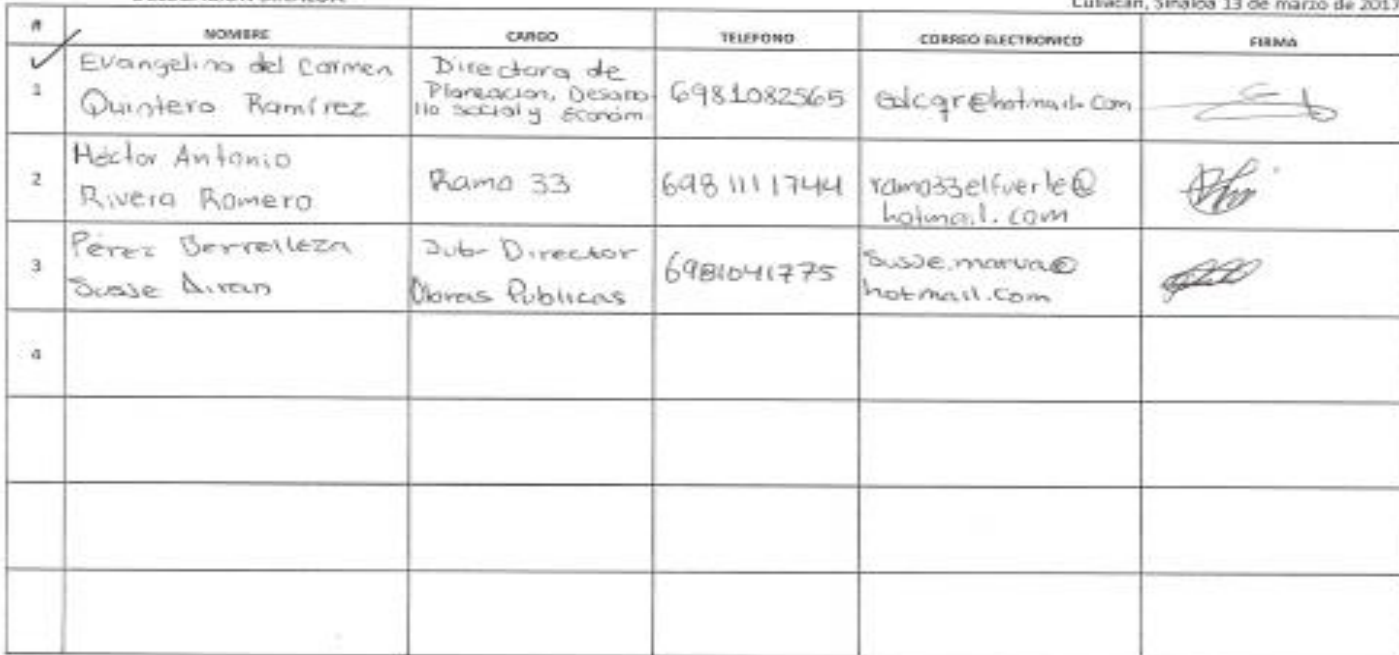 Culiacán, Sinaloa 13 de marzo de 2017
# NOMBRE CARGO TELEFONO CORREO ELECTRONICO FIRMA
1
Evangelina del Carmen
Quintero Ramírez
Directora de
Planeacion, Desarro
llo social y Económ
6981082565
edcqr@hotmail.com
2
Héctor Antonio
Rivera Romero
Ramo 33
698 1111744
ramo33elfuerte@
hotmail.com
3
Pérez Berrelleza
Sub-Director
Obras Publicas
6981041775
hotmail.com
4